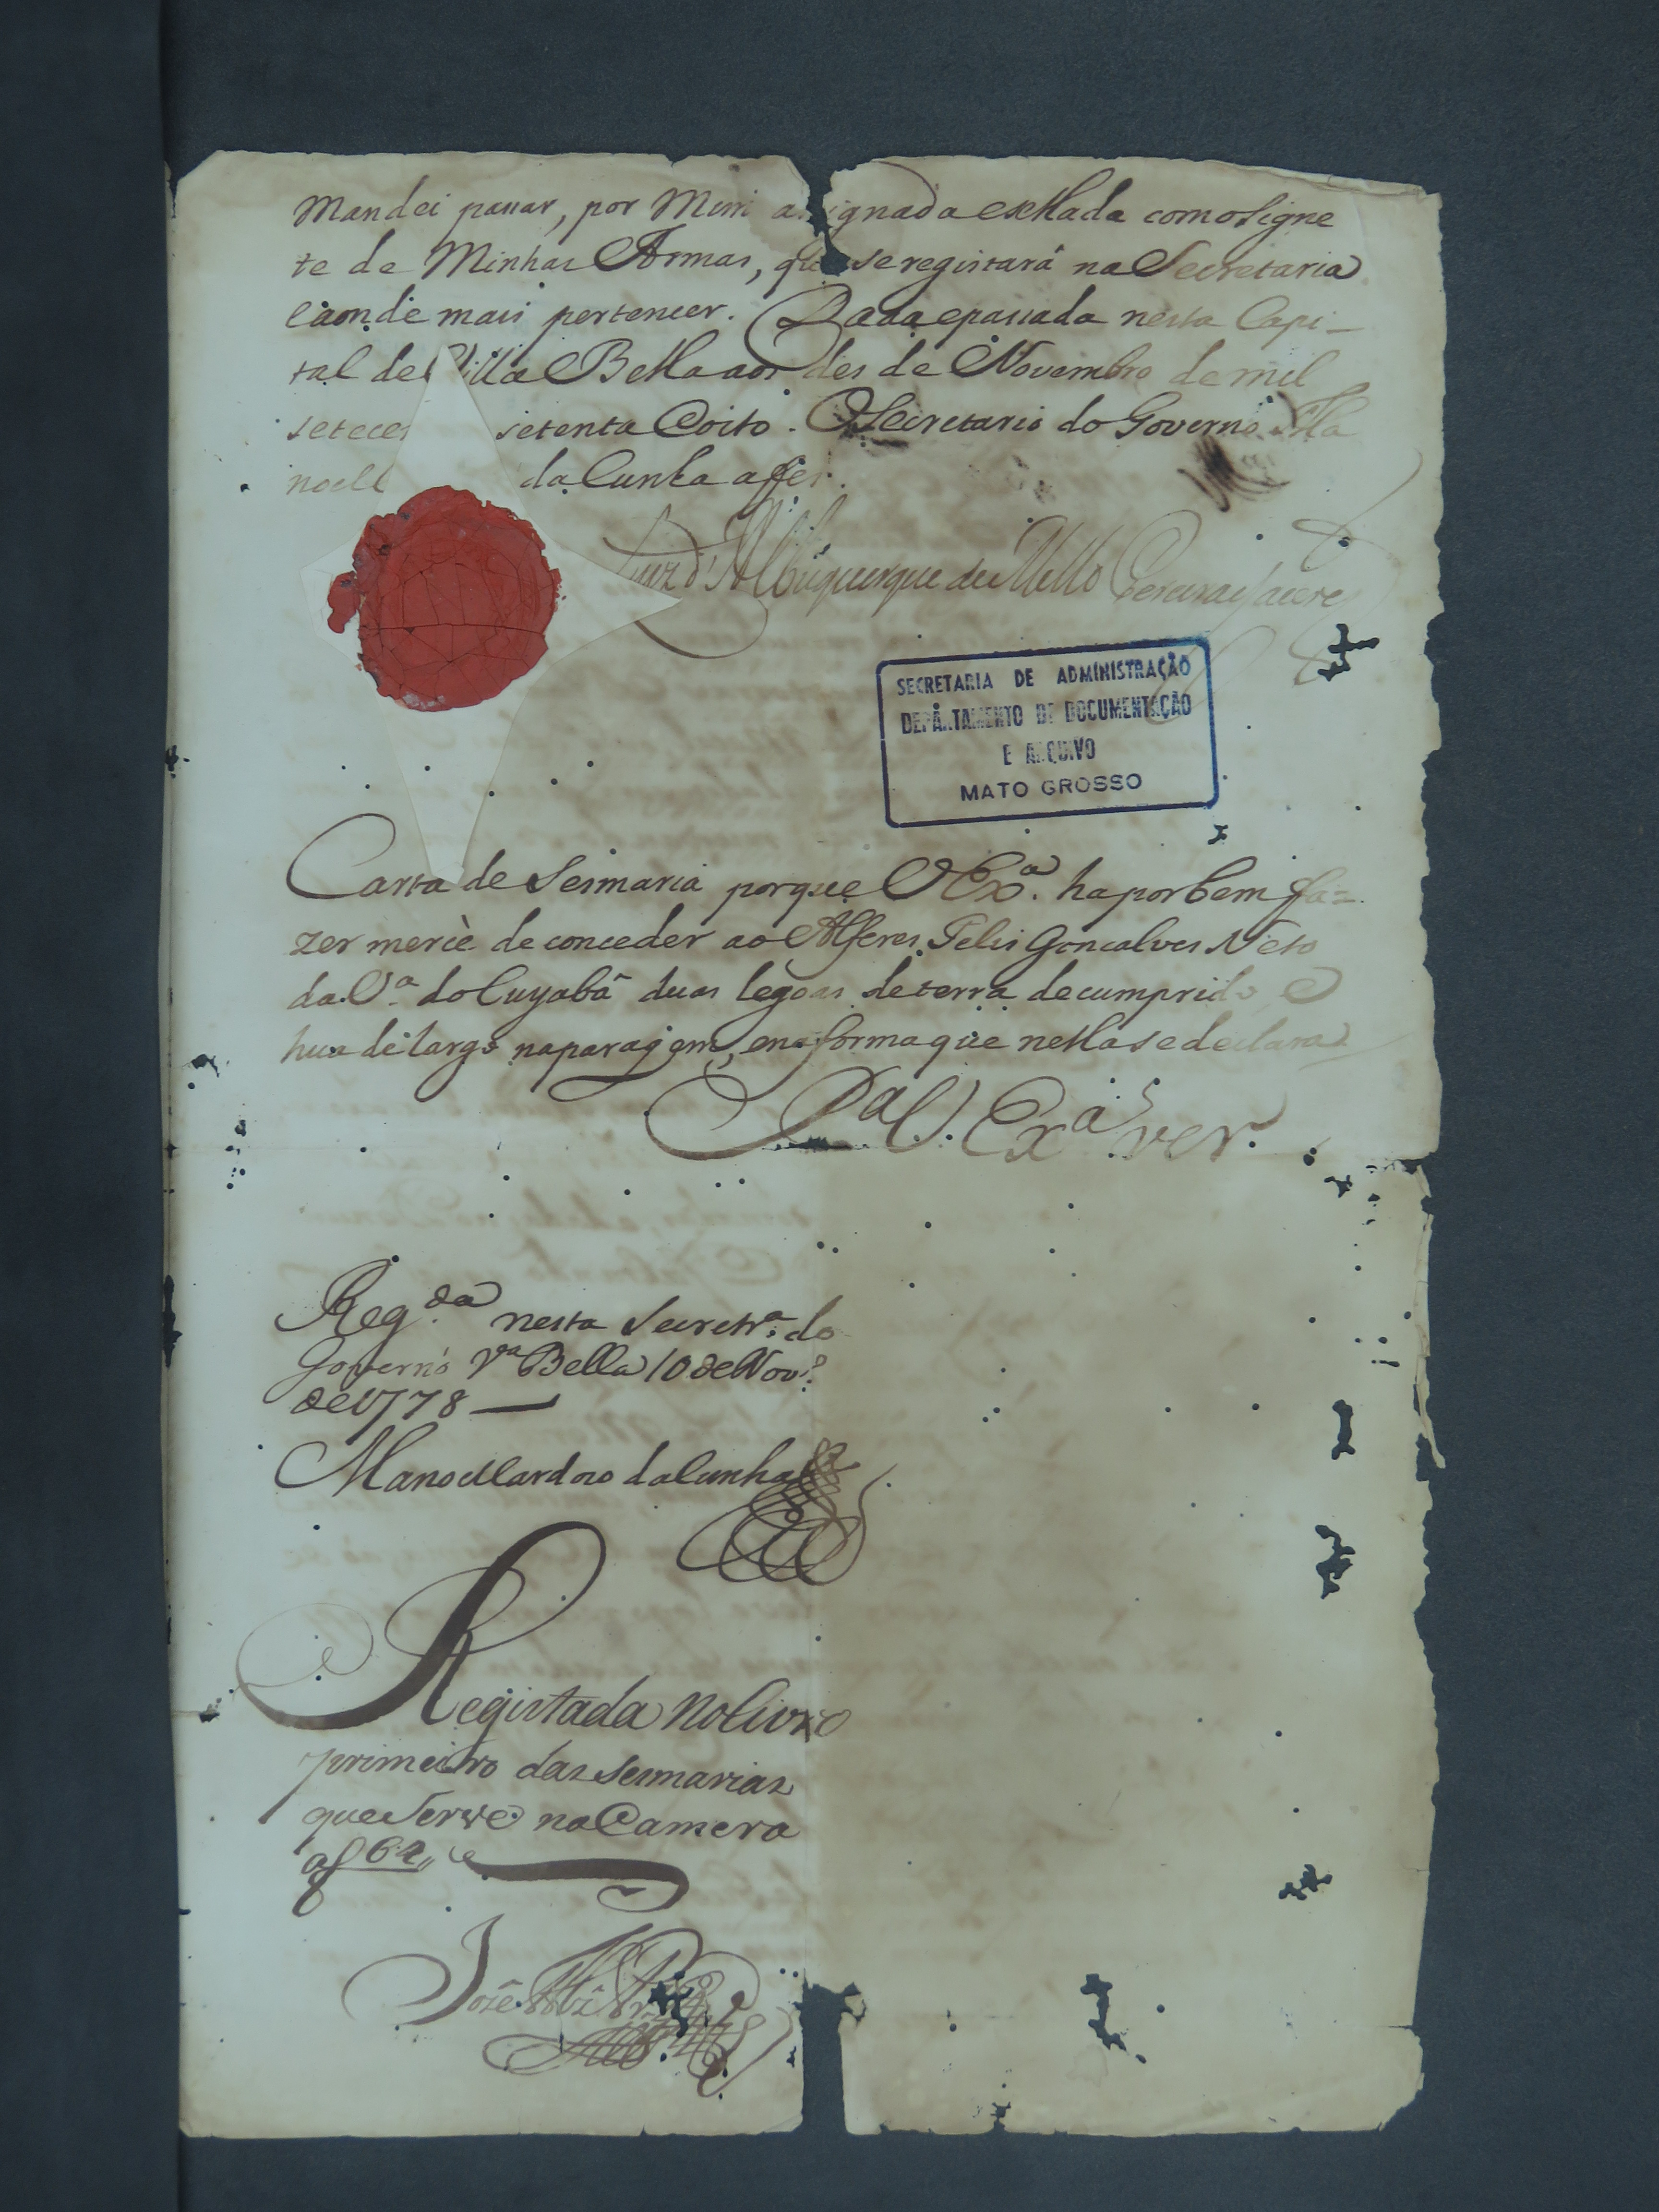 Mandei passar, por Mim assignada esellada com o signe
te de Minhas Armas, que se registará na Secretaria
eaonde mais pertencer. Dada epassada nesta Capi-
tal de Villa Bella aos des de Novembro de mil
setece setenta Eoito. OSecretario do Governo Ma
noell da Cunha afes.
Luiz d'Albuquerque de Mello Pereira eCaceres
SECRETARIA DE ADMINISTRAÇÃO
DEPARTAMENTO DE DOCUMENTAÇÃO
E ARQUIVO
MATO GROSSO
Carta de Sesmaria porque VExª. ha por bem fa=
zer mercè de conceder ao Alferes Felis Goncalves Neto
da Vª do Cuyabâ duas legoas de terra de cumprido, e
hua de largo na paragem, ena forma que nella se declara
Pª V. Exª ver.
Reg.da nesta Secretrª. do
Governo Vª Bella 10 de Nov.º
de 1778
Manoel Cardozo da Cunha
Registada no livro
primeiro das sesmarias
que Serve na Camera
af 62
Joze